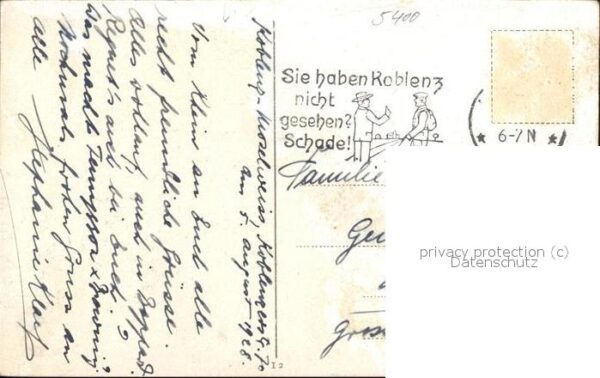 5400
Sie haben Koblenz
nicht
gesehen?
Schade!
6-7 N
Koblenz-Moselweiss, Koblenzerstr. 70
am 5. August 1928.
Vom Rhein an Euch alle
recht freundliche Grüsse.
Alles wohlauf, auch in Boppard.
Regnet's auch bei Euch?
Was macht
Nochmals frohen Gruss an
alle Stephanie
Familie
Ge
Gross
I 2
privacy protection (c)
Datenschutz